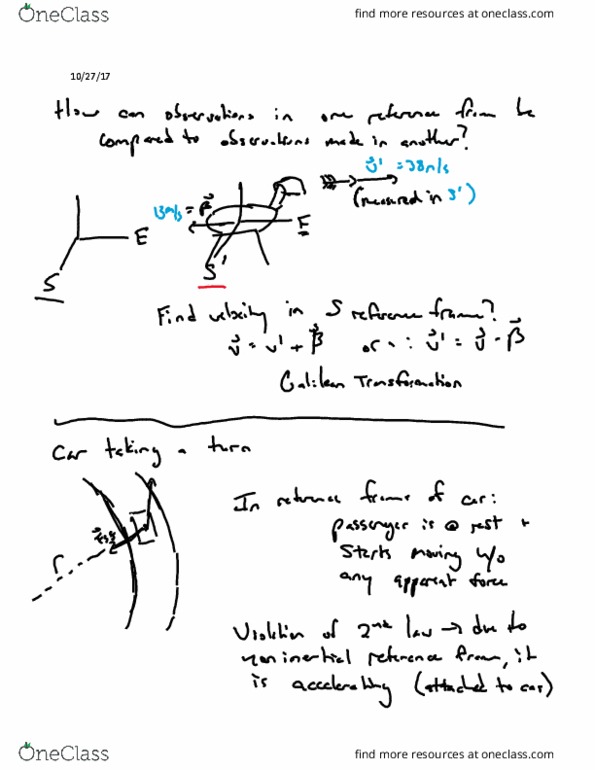 OneClass
find more resources at oneclass.com
10/27/17
How can observations in one reference fram be
compared to observations made in another?
v⃗' = 38m/s
(measured in S')
13m/s = β⃗
E
E
S'
S
Find velocity in S reference frame?
v⃗ = v' + β⃗ or v⃗' = v⃗ - β⃗
Galilean Transformation
Car taking a turn
In reference frame of car:
passenger is @ rest +
r
starts moving w/o
any apparent force
Violation of 2nd law → due to
noninertial reference fram, it
is accelerating (attached to car)
OneClass
find more resources at oneclass.com